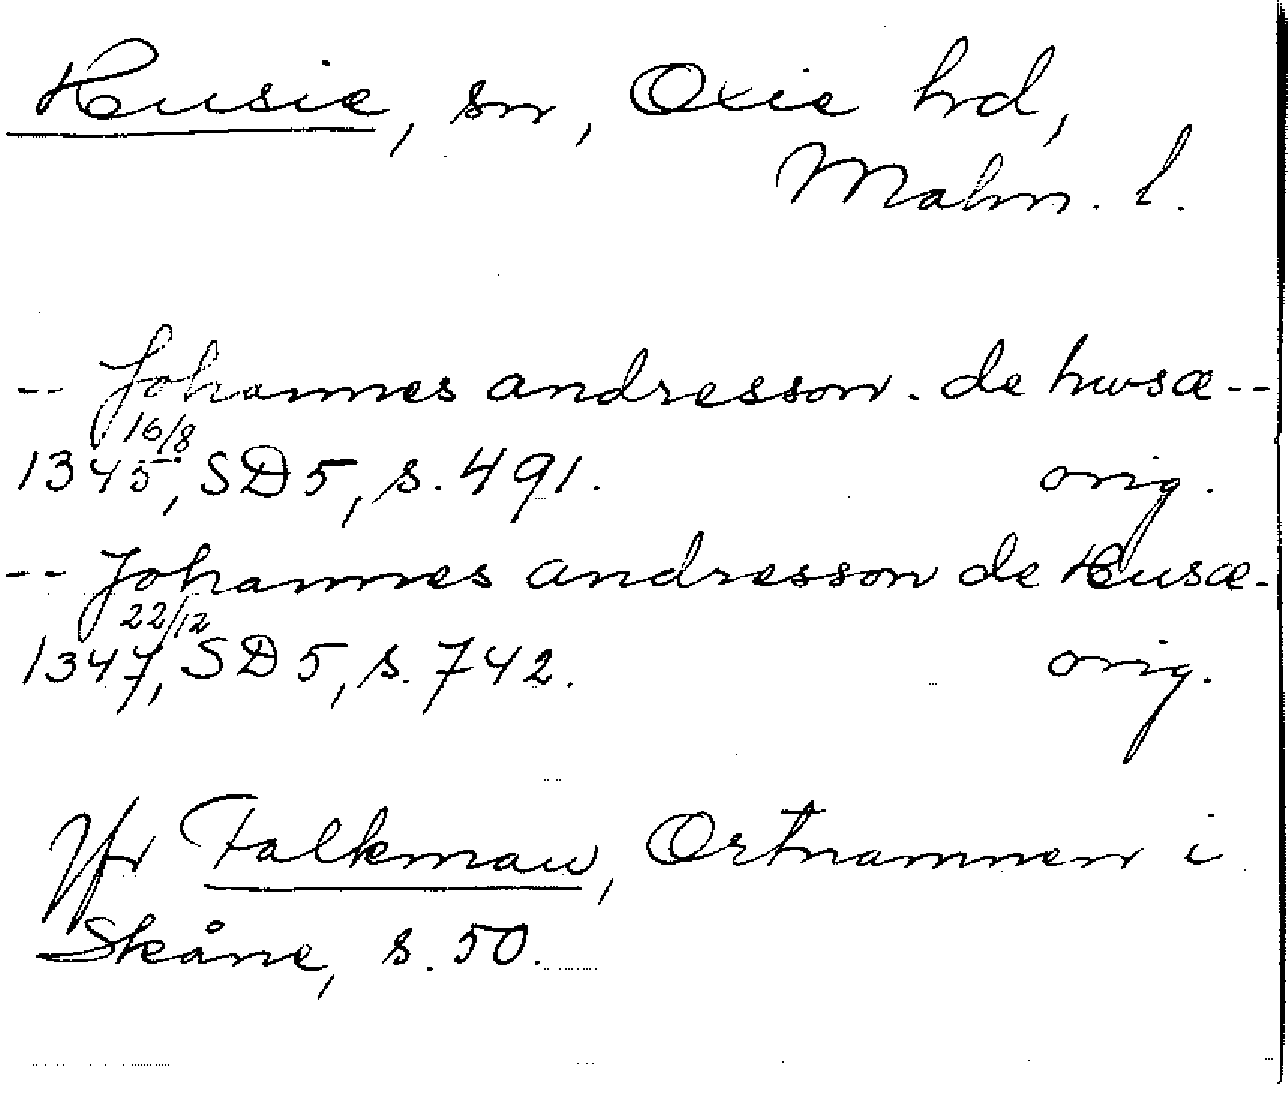 Husie, sn, Oxie hd,
Malm. l.
-- Johannes andresson. de hwsæ --
16/8
1345, SD 5, s. 491. orig.
-- Johannes andresson de Husæ -
22/12
1347, SD 5, s. 742. orig.
Jfr Falkman, Ortnamnen i
Skåne, s. 50.